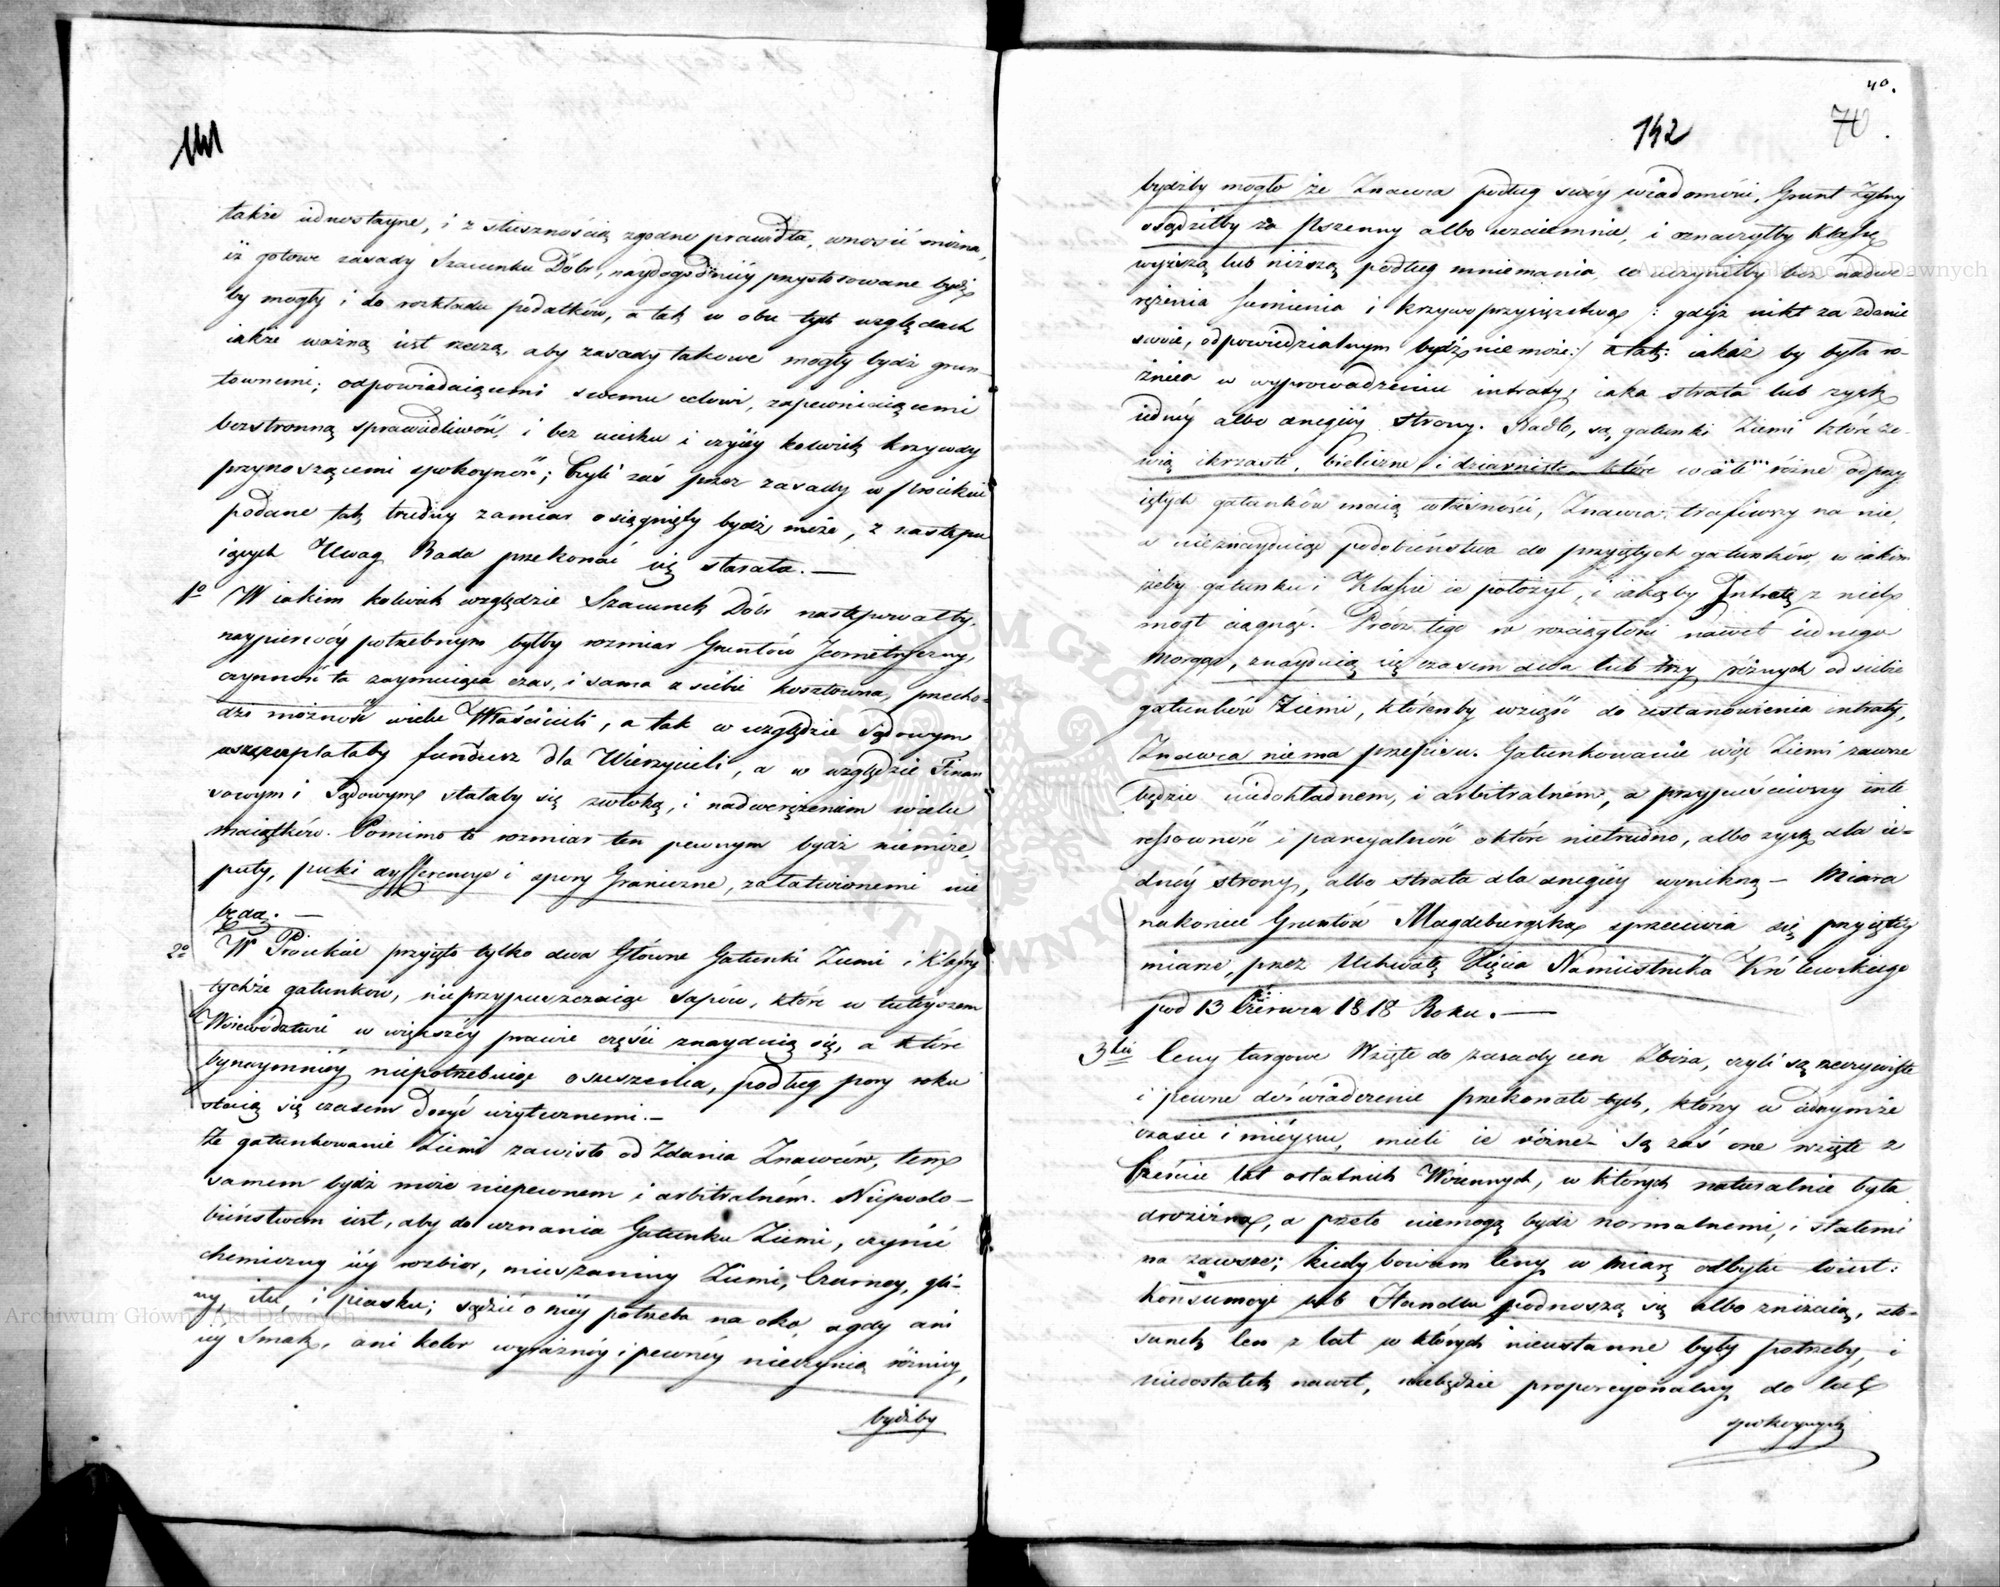 141
także iednostayne, i z słusznością zgodne prawidła, wnosić można,
iż gotowe zasady Szacunku Dóbr, naydogodniéy przystosowane bydź
by mogły i do rozkładu podatków, a tak w obu tych względach
iakże ważną iest rzeczą, aby zasady takowe mogły bydź grun-
townemi; odpowiadaiącemi swemu celowi, zapewniaiącemi
bezstronną sprawiedliwość, i bez ucisku i czyiéy kolwiek krzywdy
przynoszącemi spokoyność; Czyli zaś przez zasady w Proiekcie
podane tak trudny zamiar osiągnięty bydź może, z następu
iących Uwag Rada przekonać się starała. —
1o W iakim kolwiek względzie Szacunek Dóbr następowałby,
naypierwéy potrzebnym byłby rozmiar Gruntów Jeometryczny,
czynność ta zaymuiąca czas, i sama z siebie kosztowna, przecho-
dzi możność wielu Właścicieli, a tak w względzie Sądowym
uszczuplałaby fundusz dla Wierzycieli, a w względzie Finan
sowym i Sądowym stałaby się zwłoką, i nadwerężeniem wielu
maiątków. Pomimo to rozmiar ten pewnym bydź niemoże,
puty, puki dyfferencye i spory Graniczne, załatwionemi nie
będą. —
2o W Proiekcie przyięto tylko dwa Główne Gatunki Ziemi i Klassy
tychże gatunkow, nieprzypuszczaiąc Sapów, które w tutéyszem
Woiewództwie w większéy prawie części znayduią się, a które
bynaymniéy niepotrzebuiąc osuszenia, podług pory roku
staią się czasem dosyć użytecznemi. —
Że gatunkowanie Ziemi zawisło od Zdania Znawców, tem
samem bydź może niepewnem i arbitralném. Niepodo-
bieństwem iest, aby do uznania Gatunku Ziemi, czynić
chemiczny iéy rozbior, mieszaniny Ziemi, Czarney, gli-
ny, iłu, i piasku; sądzić o niéy potrzeba na oko, a gdy ani
iéy Smak, ani kolor wyraźnéy i pewnéy nieczynią różnicy,
bydźby
40.
142 70.
bydźby mogło że Znawca podług swéy wiadomości, Grunt Żytny
osądziłby za Pszenny albo wzaiemnie, i oznaczyłby Klassę
wyższą lub niższą podług mniemania, co uczyniłby bez nadwe
rężenia Sumienia i krzywoprzysięstwa /: gdyż nikt za zdanie
swoie, odpowiedzialnym bydź nie może :/ a tak: iakaż by była ró-
żnica w wyprowadzeniu intraty; iaka strata lub zysk
iednéy albo drugiéy strony. Nadto, są gatunki Ziemi które zo-
wią ikrzaste, bieliczne i dziarniste które wcale różne od przy
iętych gatunków maią własności, Znawca trafiwszy na nie,
a nieznayduiąc podobieństwa do przyiętych gatunków, w iakim
żeby gatunku i Klassie ie położył, i iakąby Intratę z nich
mógł ciągnąć. Prócz tego w rozciągłości nawet iednego
Morga, znayduią się czasem dwa lub trzy różnych od siebie
gatunków Ziemi, któżby wziąść do ustanowienia intraty,
Znawca nie ma przepisu. Gatunkowanie więc Ziemi zawsze
będzie niedokładnem, i arbitralném, a przypuściwszy inte
ressowność i parcyalność o które nietrudno, albo zysk dla ie-
dnéy strony, albo strata dla drugiéy wynikną — Miara
nakoniec Gruntów Magdeburgska sprzeciwia się przyiętéy
miarze, przez Uchwałę Xięcia Namiestnika Królewskiego
pod 13 Czerwca 1818 Roku. —
3cie Ceny targowe Wzięte do zasady cen Zboża, czyli są rzeczywiste
i pewne doświadczenie przekonało tych, którzy w iednymże
czasie i miéyscu, mieli ie różne — Są zaś one wzięte z
Sześciu lat ostatnich Woiennych, w których naturalnie była
drożyzna, a przeto niemogą bydź normalnemi, i stałemi
na zawsze; kiedy bowiem Ceny w miarę odbytu i iest:
konsumcyi lub Handlu podnoszą się albo zniżaią, sto-
sunek Cen z lat w których nieustanne były potrzeby, i
niedostatek nawet, niebędzie proporcyonalny do lat
spokoynych
Archiwum Główne Akt Dawnych
Archiwum Główne Akt Dawnych
ARCHIWUM GŁÓWNE AKT DAWNYCH